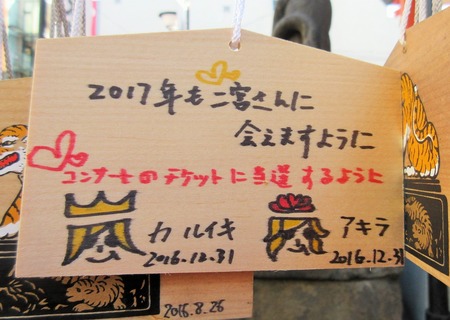 2017年も二宮さんに
会えますように
コンサートのチケットに当選するように
カルイキ
2016.12.31
アキラ
2016.12.31
2016.8.26